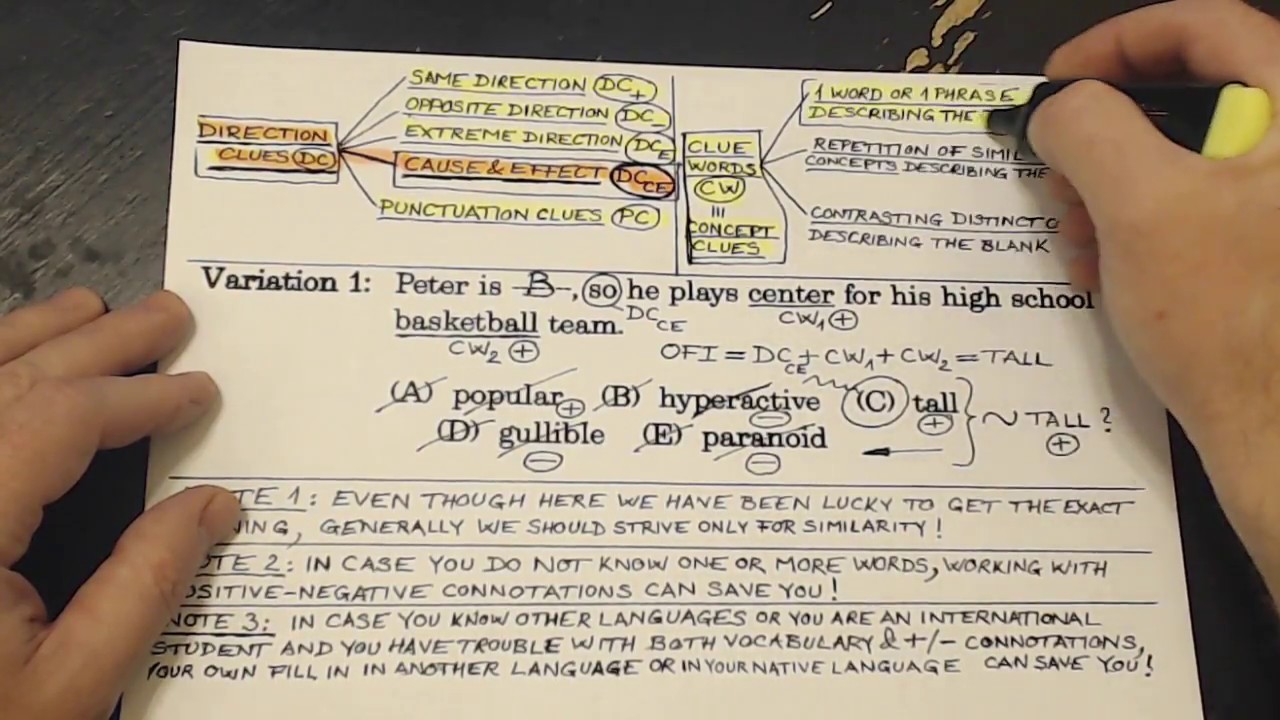 SAME DIRECTION (DC+)
OPPOSITE DIRECTION (DC-)
EXTREME DIRECTION (DCE)
DIRECTION
CLUES (DC)
CAUSE & EFFECT DCCE
PUNCTUATION CLUES (PC)
CLUE
WORDS
CW
III
CONCEPT
CLUES
1 WORD OR 1 PHRASE
DESCRIBING THE
REPETITION OF SIMIL
CONCEPTS DESCRIBING THE
CONTRASTING DISTINCT C
DESCRIBING THE BLANK
Variation 1: Peter is -B-, so he plays center for his high school
DCCE CW1 +
basketball team.
CW2 +
OFI = DCCE + CW1 + CW2 = TALL
(A) popular + (B) hyperactive - (C) tall +
(D) gullible - (E) paranoid -
~ TALL ?
+
TE 1: EVEN THOUGH HERE WE HAVE BEEN LUCKY TO GET THE EXACT
NING, GENERALLY WE SHOULD STRIVE ONLY FOR SIMILARITY!
OTE 2: IN CASE YOU DO NOT KNOW ONE OR MORE WORDS, WORKING WITH
OSITIVE-NEGATIVE CONNOTATIONS CAN SAVE YOU!
NOTE 3: IN CASE YOU KNOW OTHER LANGUAGES OR YOU ARE AN INTERNATIONAL
STUDENT AND YOU HAVE TROUBLE WITH BOTH VOCABULARY & +/- CONNOTATIONS,
YOUR OWN FILL IN IN ANOTHER LANGUAGE OR IN YOUR NATIVE LANGUAGE CAN SAVE YOU!